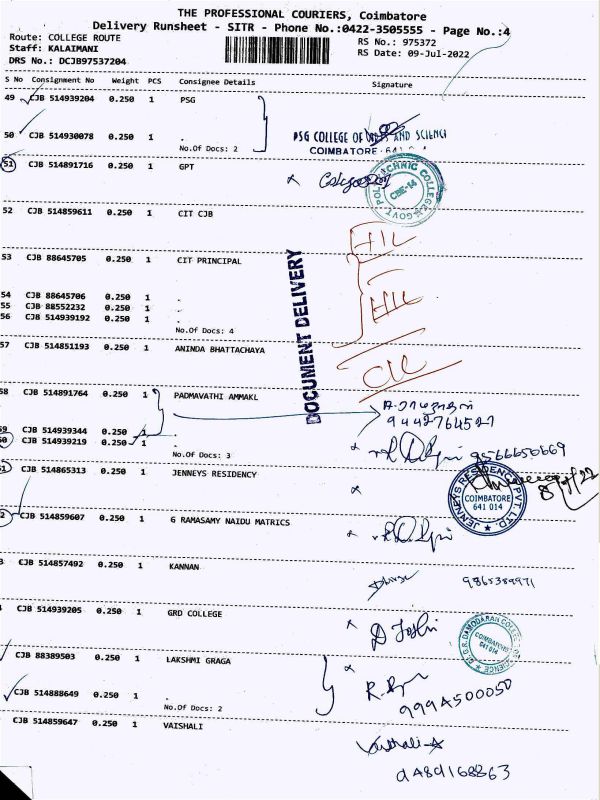 THE PROFESSIONAL COURIERS, Coimbatore
Delivery Runsheet - SITR - Phone No.:0422-3505555 - Page No.:4
Route: COLLEGE ROUTE
Staff: KALAIMANI
DRS No.: DCJB97537204
RS No.: 975372
RS Date: 09-Jul-2022
S No Consignment No Weight PCS Consignee Details Signature
49 CJB 514939204 0.250 1 PSG
50 CJB 514930078 0.250 1 .
No.Of Docs: 2
PSG COLLEGE OF ARTS AND SCIENCE
COIMBATORE - 641 014
51 CJB 514891716 0.250 1 GPT
CBE-14
52 CJB 514859611 0.250 1 CIT CJB
53 CJB 88645705 0.250 1 CIT PRINCIPAL
54 CJB 88645706 0.250 1 .
55 CJB 88552232 0.250 1 .
56 CJB 514939192 0.250 1 .
No.Of Docs: 4
DOCUMENT DELIVERY
57 CJB 514851193 0.250 1 ANINDA BHATTACHAYA
58 CJB 514891764 0.250 1 PADMAVATHI AMMAKL
9442764527
59 CJB 514939344 0.250 1 .
60 CJB 514939219 0.250 1 .
No.Of Docs: 3
9566650669
61 CJB 514865313 1 JENNEYS RESIDENCY
JENNEYS RESIDENCY PVT. LTD.
COIMBATORE
641 014
62 CJB 514859607 0.250 1 G RAMASAMY NAIDU MATRICS
CJB 514857492 0.250 1 KANNAN
9865389971
CJB 514939205 0.250 1 GRD COLLEGE
COIMBATORE
641 014
CJB 88389503 0.250 1 LAKSHMI GRAGA
CJB 514888649 0.250 1 .
No.Of Docs: 2
CJB 514859647 0.250 1 VAISHALI
Vaishali-A